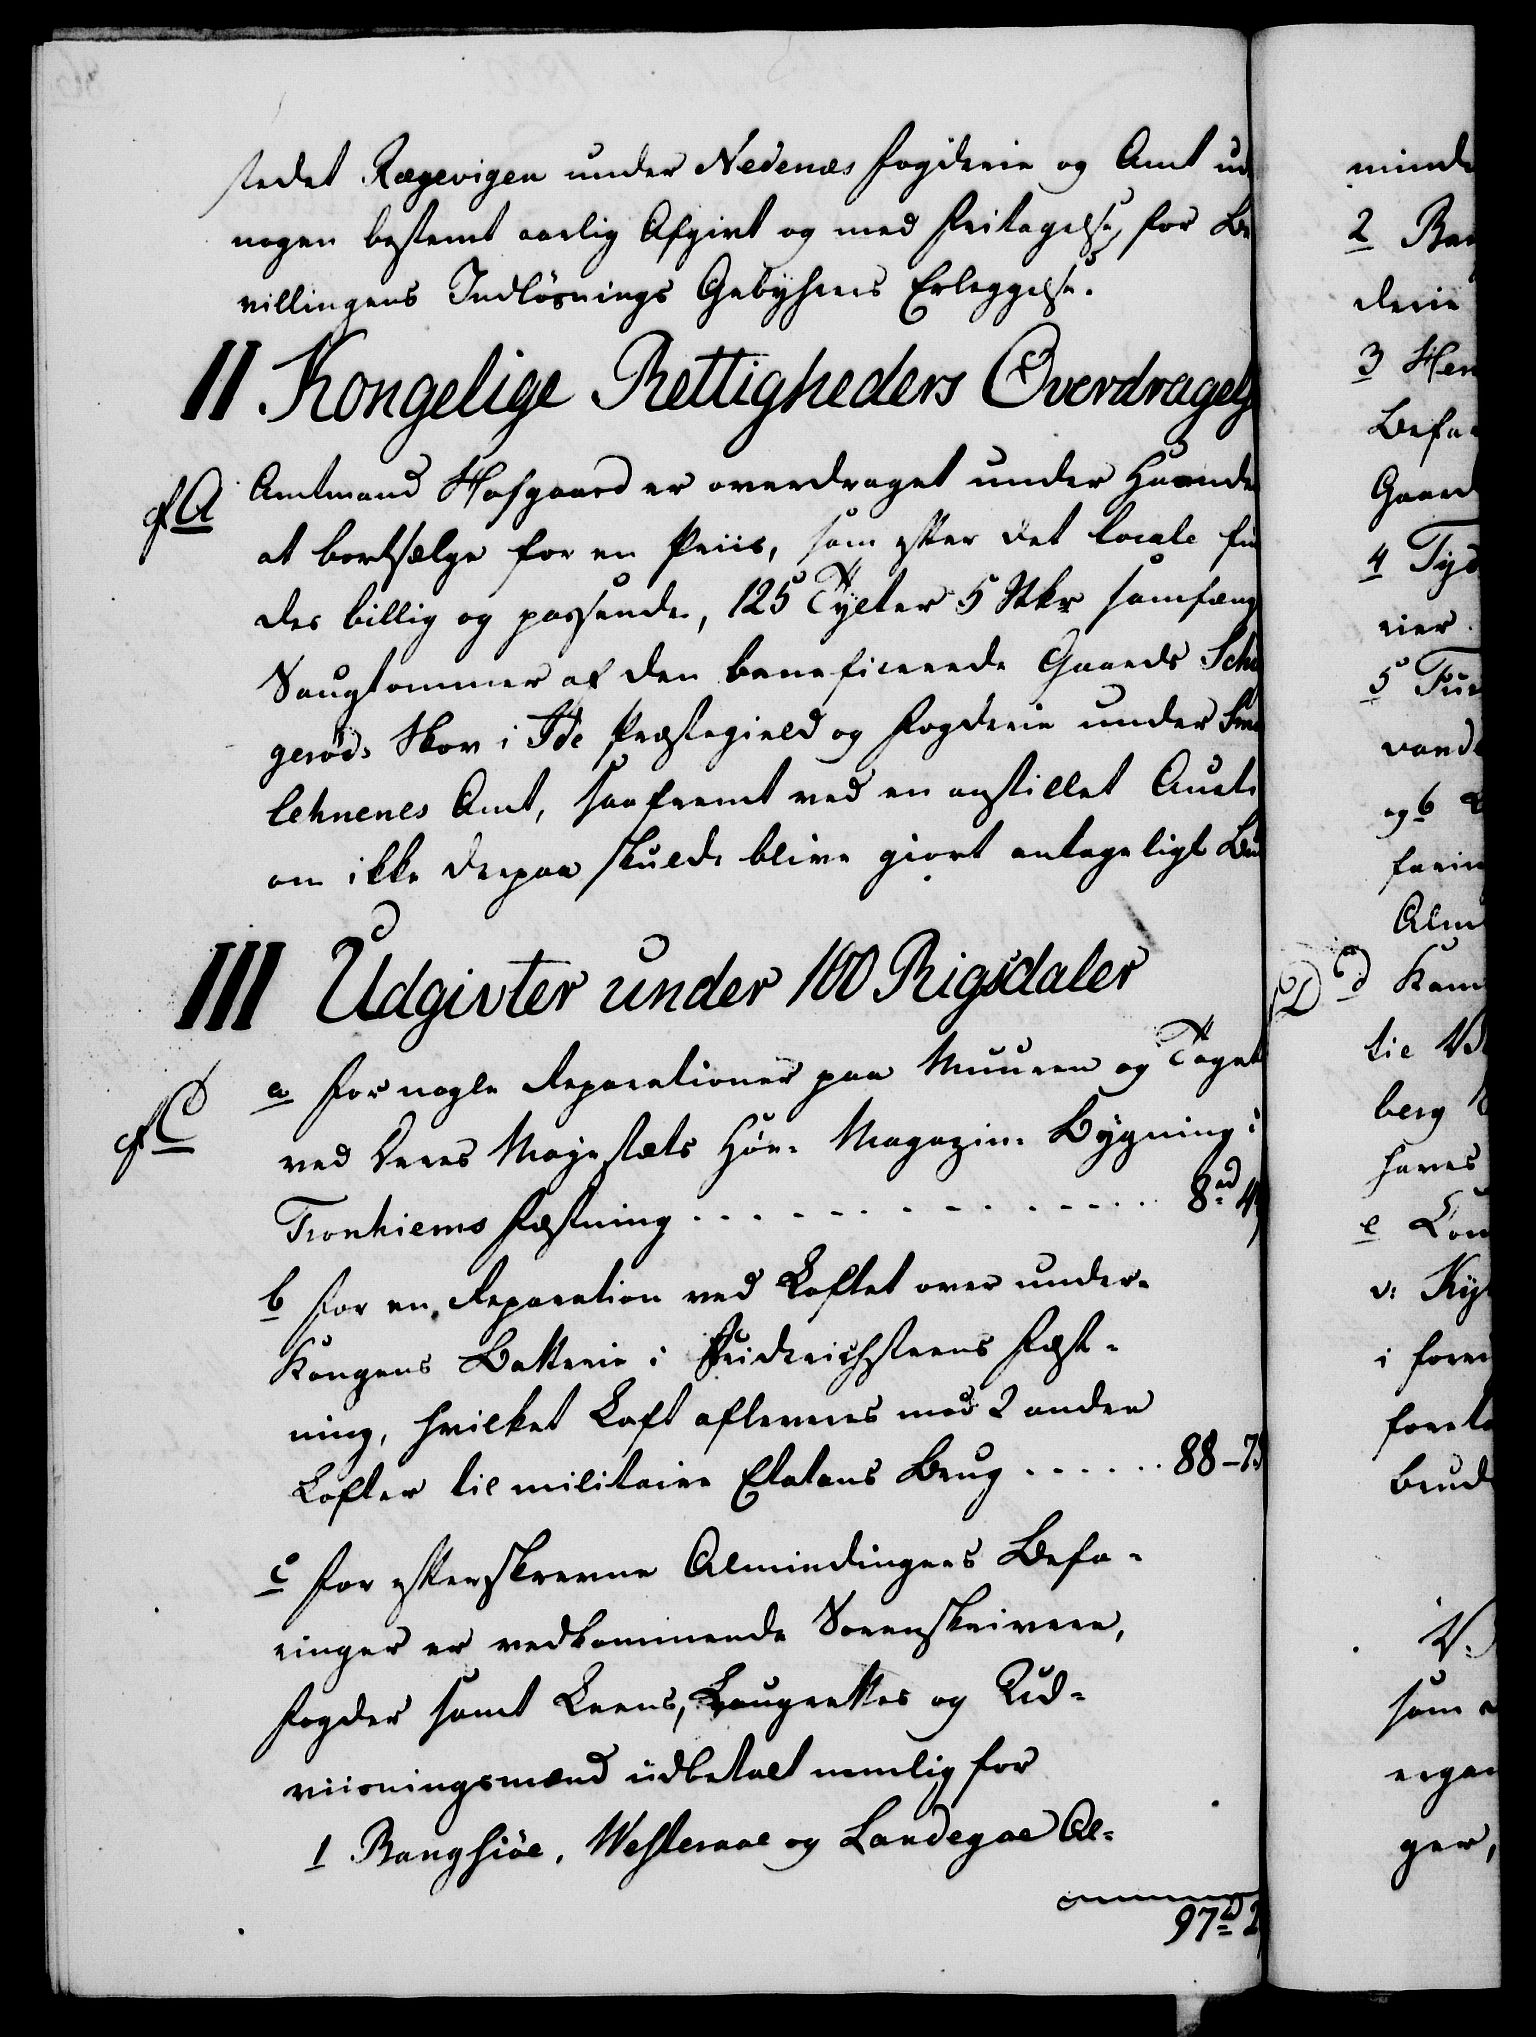 stedet Rægevigen under Nedenæs Fogderie og Amt ud
nogen bestemt aarlig Afgivt og med Fritagelse for Be
villingens Indløsnings Gebyhrers Erleggelse.
II. Kongelige Rettigheders Overdragels
Amtmand Hofgaard er overdraget under Haanden
at bortsælge for en Priis, som efter det locale fin
des billig og passende, 125 Tylter 5 Stkr
Saugtømmer af den beneficerede Gaards
gerøds Skov i Ide Præstegield og Fogderie under Sma
lehnenes Amt, saafremt ved en anstillet Aucti
on ikke derpaa skulde blive giort antageligt Bud
III Udgivter under 100 Rigsdaler
a For nogle Reparationer paa Muuren og Taget
ved Deres Majestæts Høe- Magazin- Bygning i
Tronhiems Fæstning . . . . . . . . . . . . 8rd 4
b For en Reparation ved Loftet over under-
Kongens Batterie i Fridrichsteens Fæst-
ning, hvilket Loft afleveres med 2 andre
Lofter til militaire Etatens Brug . . . . . . 88-7
c For efterskrevne Almindingers Befa-
ringer er vedkommende Sorenskrivere,
Fogder samt Leens, Laugrettes og Ud-
viisningsmænd udbetalt nemlig for
1 Rangsiøe, Westeraae og Landegae Al-
97rd 2
minde
2
derie
3
Befa
Gaard
4
rier
5
vand
og 6
Alm
d
tie
berg
haves
e
v:
i
brud
V.
som
ger,